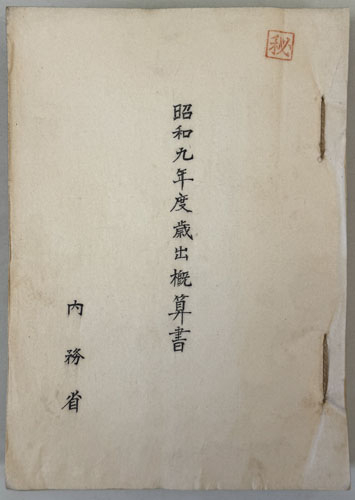 秘
昭和九年度歳出概算書
内務省